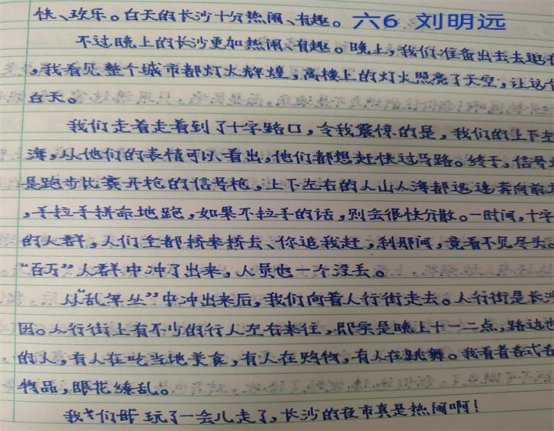 快、欢乐。白天的长沙十分热闹、有趣。 六6 刘明远
不过晚上的长沙更加热闹、有趣。晚上,我们准备出去去逛
,我看见整个城市都灯火辉煌,高楼上的灯火照亮了天空,让这个
白天。
我们走着走着到了十字路口,令我震惊的是,我们的上下左
海,从他们的表情可以看出,他们都想赶快过马路。终于,信号
是跑步比赛开枪的信号枪,上下左右的人山人海都迅速奔向前
,手拉手拼命地跑,如果不拉手的话,则会很快分散。一时间,十字
的人群,人们全都挤来挤去、你追我赶,刹那间,竟看不见尽头。
“百万”人群中冲了出来,人员也一个没丢。
从“乱军丛”中冲出来后,我们向着人行街走去。人行街是长沙
因。人行街上有不少的行人左右来往,即使是晚上十一二点,路边
的人,有人在吃当地美食,有人在购物,有人在跳舞。我看着各式各
物品,眼花缭乱。
我们 玩了一会儿走了,长沙的夜市真是热闹啊!